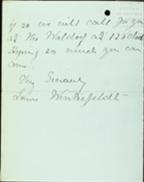 is so we will call for you
at the Waldorf at 12 o'clock
Hoping so much you can
come
Very Sincerely